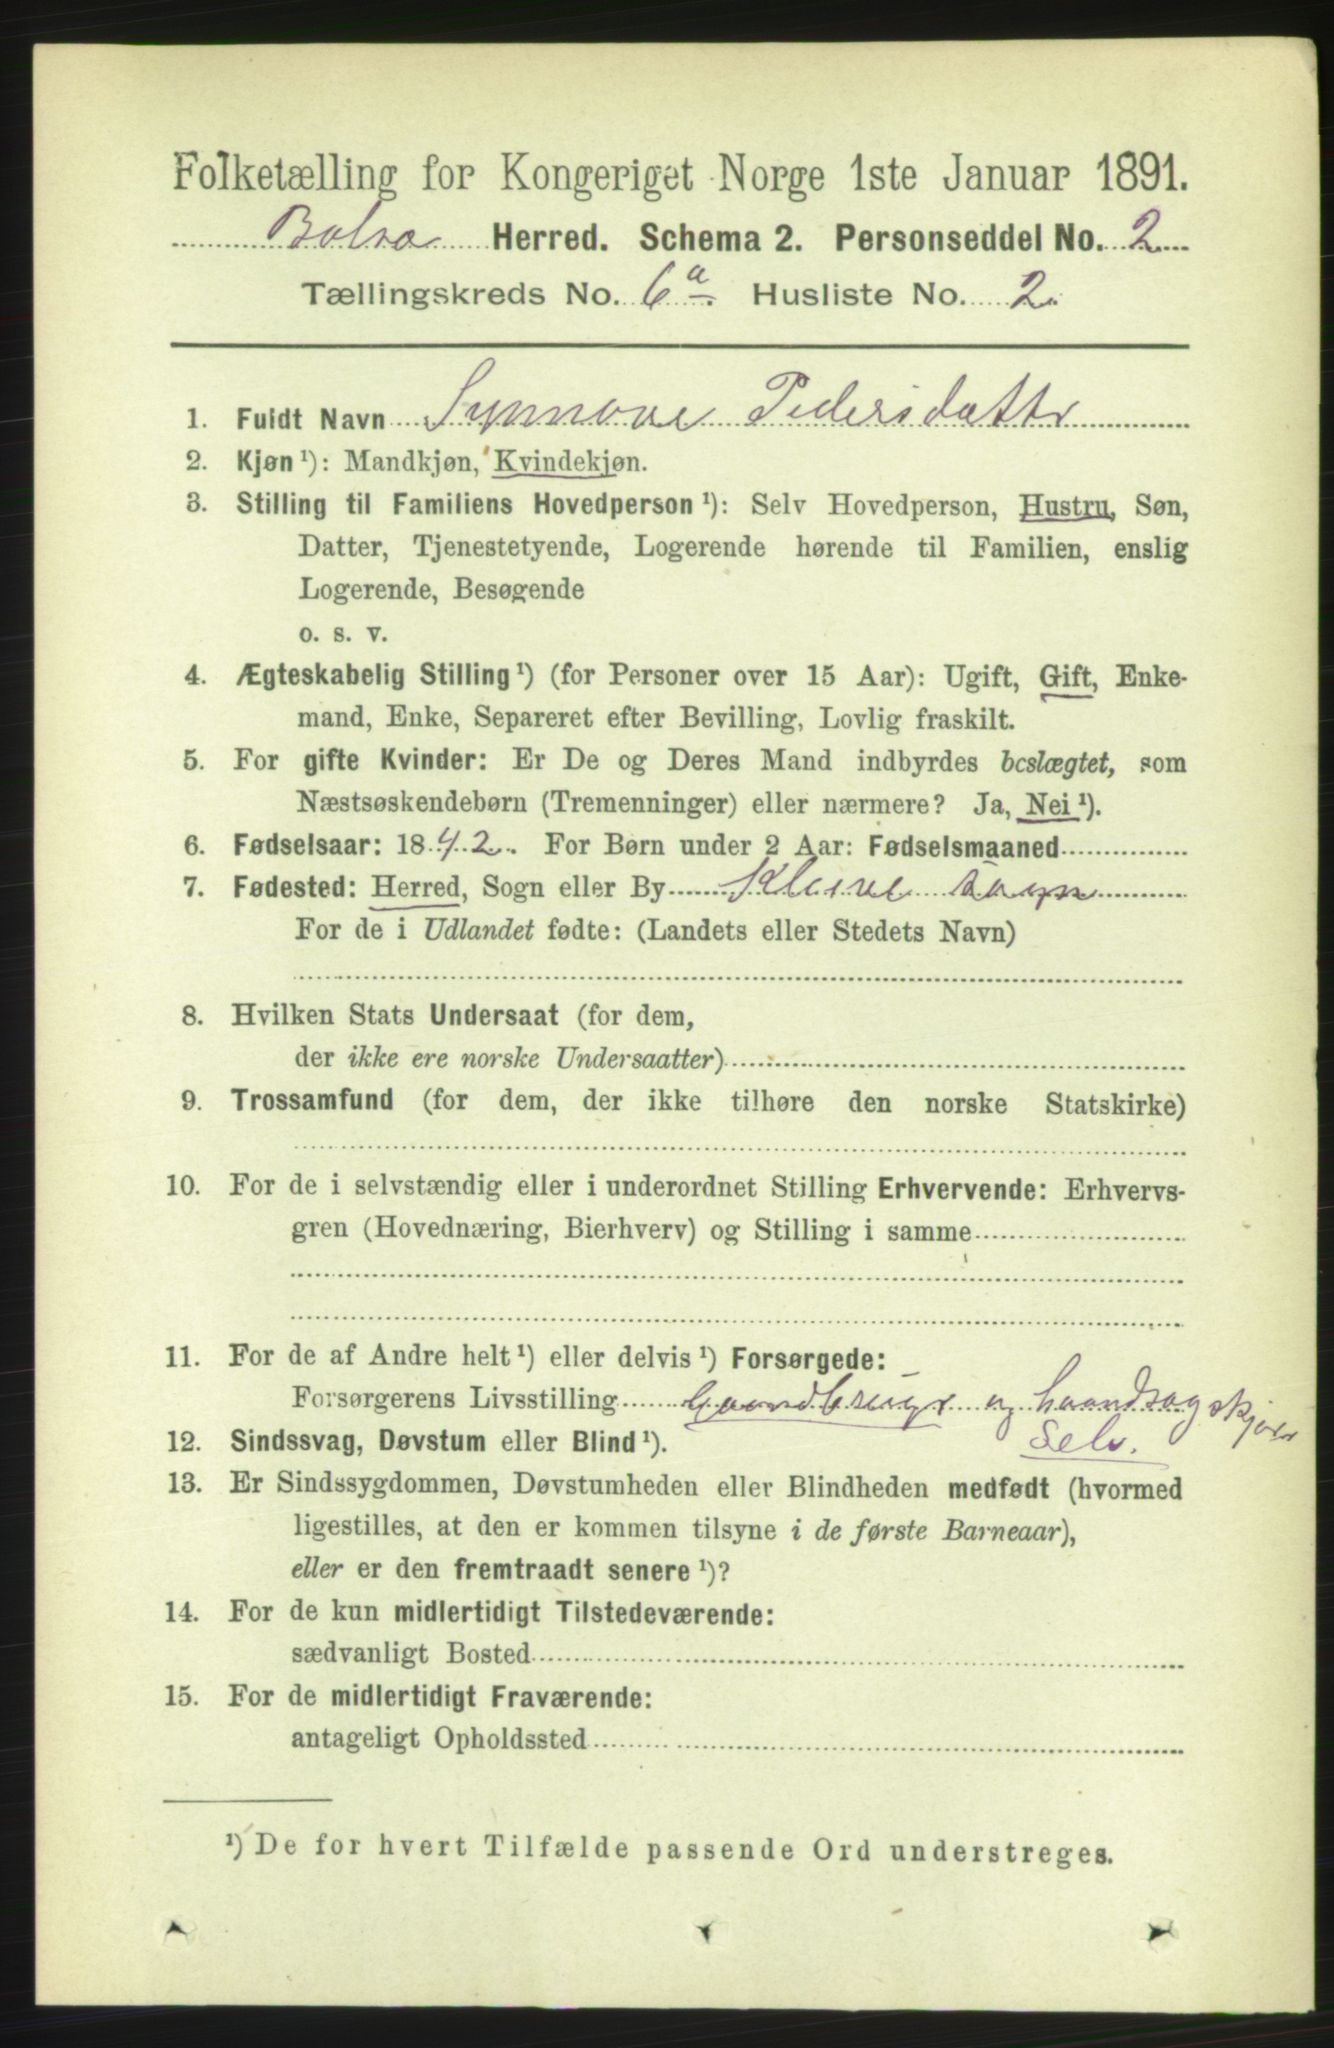 Folketælling for Kongeriget Norge 1ste Januar 1891.
Bolsø Herred. Schema 2. Personseddel No. 2
Tællingskreds No. 6a. Husliste No. 2.
1. Fuldt Navn Synnøve Pedersdattr
2. Kjøn¹): Mandkjøn, Kvindekjøn.
3. Stilling til Familiens Hovedperson¹): Selv Hovedperson, Hustru, Søn,
Datter, Tjenestetyende, Logerende hørende til Familien, enslig
Logerende, Besøgende
o. s. v.
4. Ægteskabelig Stilling¹) (for Personer over 15 Aar): Ugift, Gift, Enke-
mand, Enke, Separeret efter Bevilling, Lovlig fraskilt.
5. For gifte Kvinder: Er De og Deres Mand indbyrdes beslægtet, som
Næstsøskendebørn (Tremenninger) eller nærmere? Ja, Nei¹).
6. Fødselsaar: 1842. For Børn under 2 Aar: Fødselsmaaned
7. Fødested: Herred, Sogn eller By Kleive sogn
For de i Udlandet fødte: (Landets eller Stedets Navn)
8. Hvilken Stats Undersaat (for dem,
der ikke ere norske Undersaatter)
9. Trossamfund (for dem, der ikke tilhøre den norske Statskirke)
10. For de i selvstændig eller i underordnet Stilling Erhvervende: Erhvervs-
gren (Hovednæring, Bierhverv) og Stilling i samme
11. For de af Andre helt¹) eller delvis¹) Forsørgede:
Forsørgerens Livsstilling Gaardbruger og haandsagskjører
Selv.
12. Sindssvag, Døvstum eller Blind¹).
13. Er Sindssygdommen, Døvstumheden eller Blindheden medfødt (hvormed
ligestilles, at den er kommen tilsyne i de første Barneaar),
eller er den fremtraadt senere¹)?
14. For de kun midlertidigt Tilstedeværende:
sædvanligt Bosted
15. For de midlertidigt Fraværende:
antageligt Opholdssted
¹) De for hvert Tilfælde passende Ord understreges.